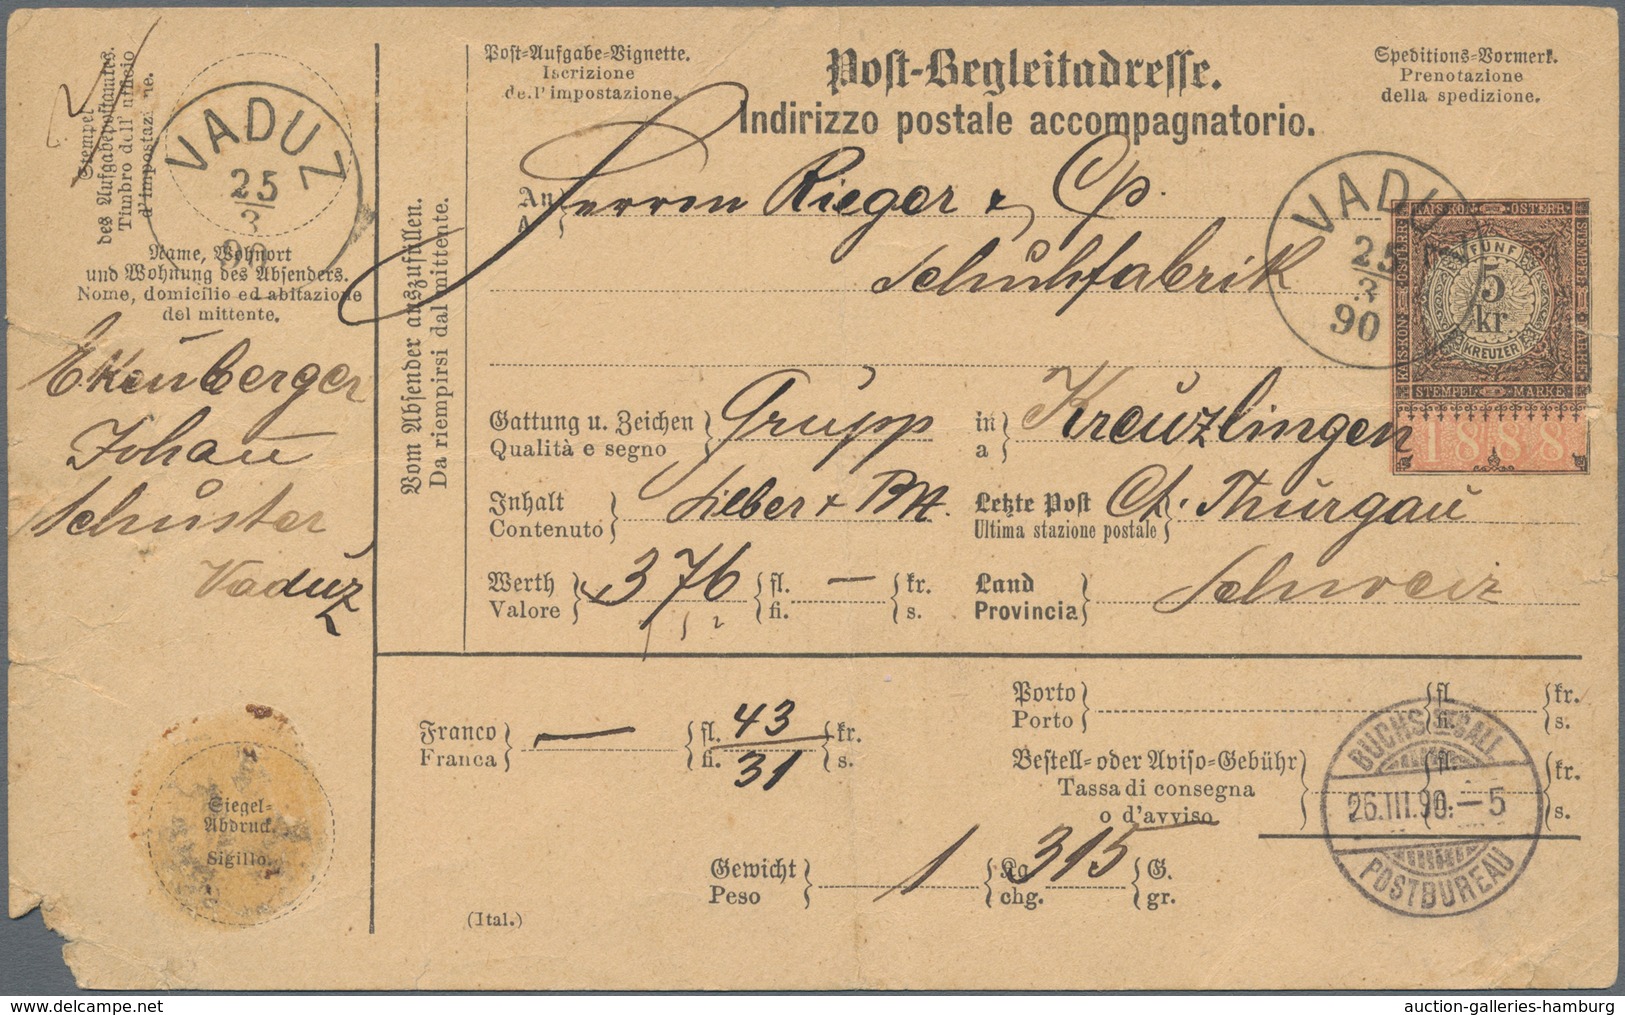 Stempel
des Aufgabepostamtes.
Timbro dell' ufficio
d'impostazione.
VADUZ
25
3
90
Name, Wohnort
und Wohnung des Absenders.
Nome, domicilio ed abitazione
del mittente.
Johan
Schuster
Vaduz
Siegel-
Abdruck.
Sigillo.
Vom Absender auszufüllen.
Da riempirsi dal mittente.
Post-Aufgabe-Vignette.
Iscrizione
dell'impostazione.
Post-Begleitadresse.
Indirizzo postale accompagnatorio.
Speditions-Vormerk.
Prenotazione
della spedizione.
An
A
Herren Rieger & Cp.
Schuhfabrik
VADUZ
25
3
90
KAIS. KÖN. ÖSTERR.
FÜNF
5
kr
KREUZER
STEMPEL MARKE
1888
Gattung u. Zeichen
Qualità e segno
Grupp
in
a
Kreuzlingen
Inhalt
Contenuto
Silber + BN.
Letzte Post
Ultima stazione postale
Ct. Thurgau
Werth
Valore
376 fl. — kr.
fi. s.
Land
Provincia
Schweiz
Franco
Franca
— fl. 43 kr.
fi. 31 s.
Porto
Porto
fl. kr.
fi. s.
Bestell- oder Aviso-Gebühr
Tassa di consegna
o d'avviso
fl. kr.
fi. s.
BUCHS ST. GALL.
26.III.90.–5
POSTBUREAU
Gewicht
Peso
1 Kg 315 G.
chg. gr.
(Ital.)
auction-galleries-hamburg